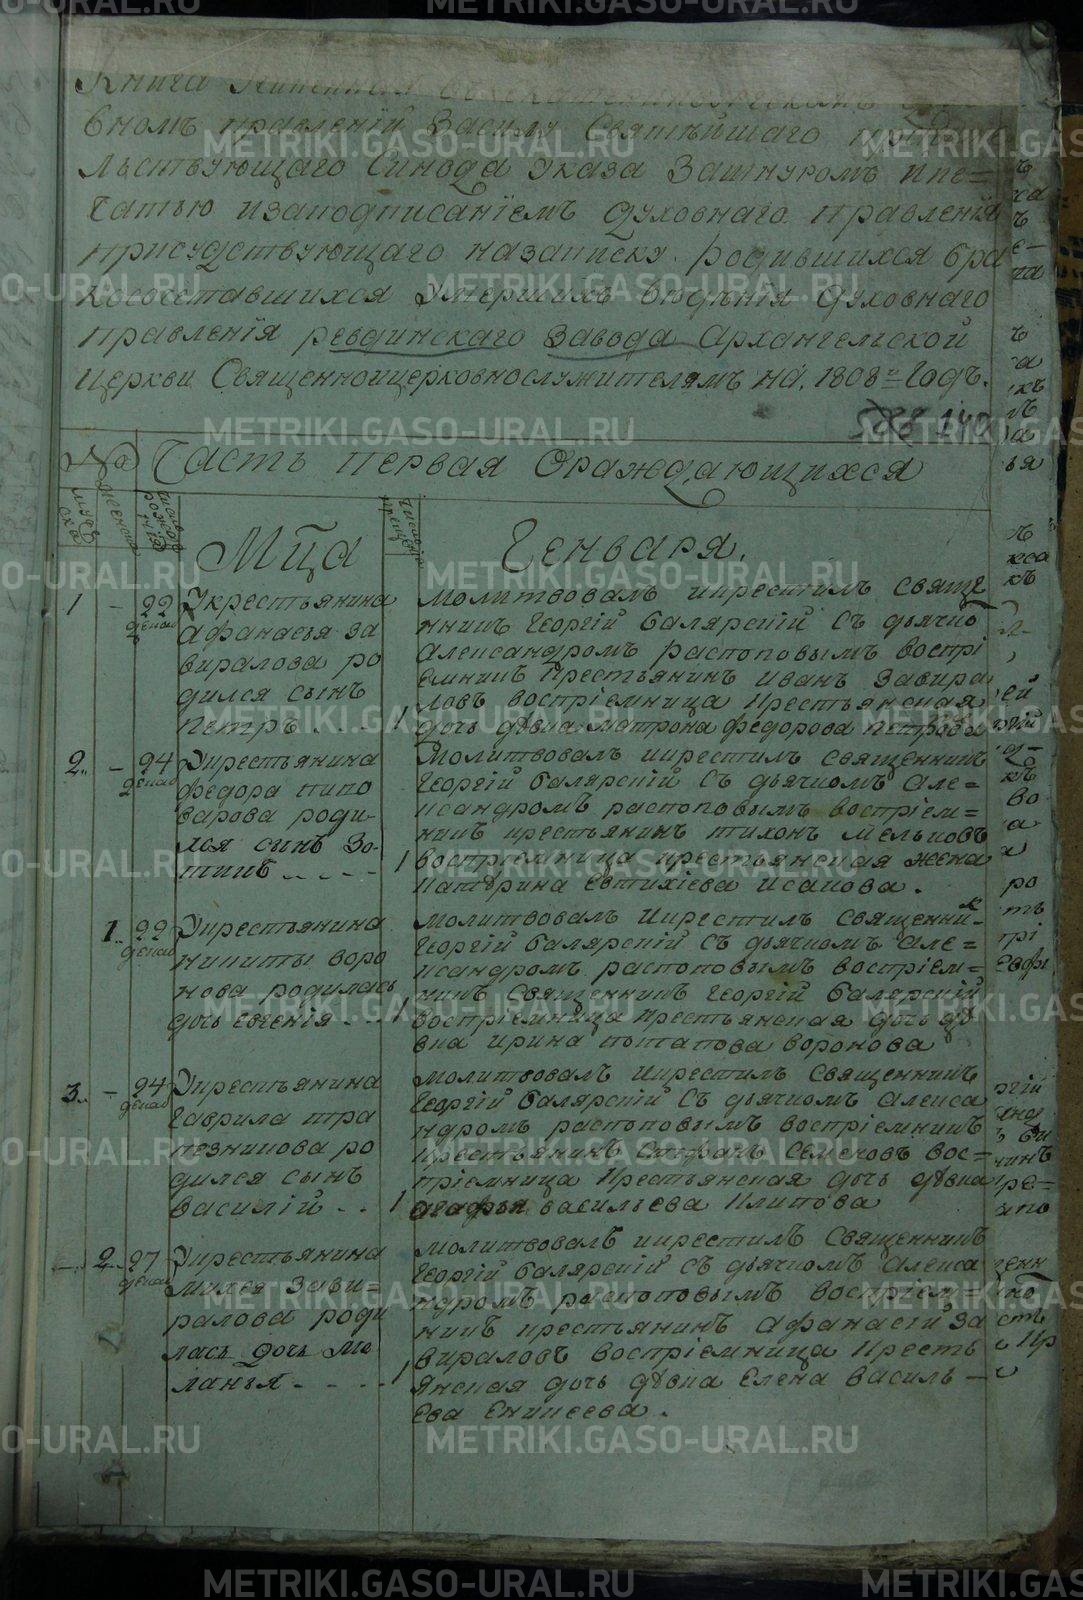 Книга
вномъ правленїи Всилу Святѣйшаго прави
льствующаго Синода Указа Зашнуромъ ипе=
чатью изаподписанїемъ духовнаго правленїя
присудствующаго назаписку родившихся бра
косочетавшихся Умершихъ вѣденїя духовнаго
правленїя ревдинскаго Завода Архангельской
Церкви Священноицерковнослужителямъ На 1808й Годъ.
140
Часть первая Ораждающихся
Мца Генваря.
1 – 22 Укрестьянина
Афанасья За
виралова ро
дился сынъ
Петръ . . . . 1
Молитвовалъ икрестилъ Свяще
нникъ Георгїй Балярскїй Съ дьячко
Александромъ распоповымъ воспрї
емникъ Крестьянинъ Иванъ Завира
ловъ воспрїемница Крестьянская
дочь дѣвка Матрона федорова Петрова
2.. – 24 Укрестьянина
федора пипо
варова роди-
лся сынъ Зо-
тикъ . - - - 1
Молитвовалъ икрестилъ священникъ
Георгїй Балярскїй съ дьячкомъ Але=
ксандромъ распоповымъ воспрїем=
никъ крестьянинъ тихонъ Мельковъ
воспрїемница крестьянская жена
катерина Евтихїева Исакова .
1.. 22 Укрестьянина
никиты воро
нова родилась
дочь Евгенїя - - 1
Молитвовалъ Икрестилъ священни-къ
Георгїй Балярскїй съ дьячкомъ Але=
ксандромъ распоповымъ воспрїем=
никъ Священникъ Георгїй Балярскїй
воспрїемница крестьянская дочь дѣ
вка ирина потапова воронова
3.. – 24 Укрестьянина
Гаврила тра
пезникова ро
дился сынъ
василїй . . . 1
Молитвовалъ Икрестилъ Священникъ
Георгїй Балярскїй съ дьячкомъ Алекса
ндромъ распоповымъ воспрїемникъ
крестьянинъ Стефанъ Семеновъ вос=
прїемница Крестьянская дочь дѣвка
агафья васильева Климова
– 2.. 27 Укрестьянина
михея Зави=
ралова роди
лась дочь Ме
ланья - - - - 1
Молитвовалъ икрестилъ Священникъ
Георгїй Балярскїй съ дьячкомъ Алекса
ндромъ распоповымъ воспрїем=
никъ крестьянинъ Афанасїй За
вираловъ воспрїемница Кресть
янская дочь дѣвка Елена василь –
Ева Еникеева .
METRIKI.GASO-URAL.RU